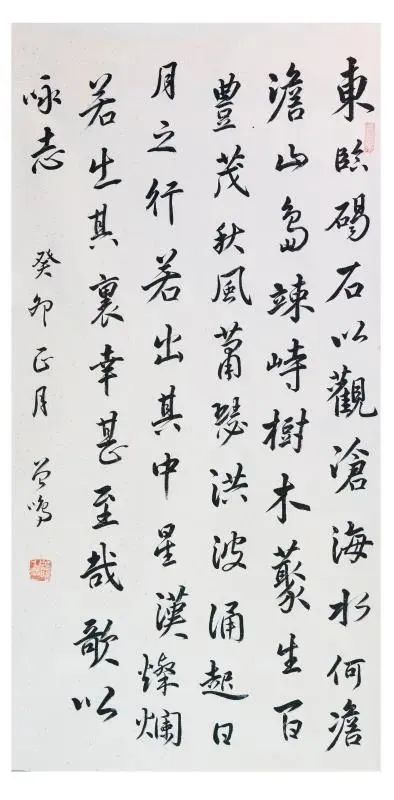 東臨碣石以觀滄海水何澹
澹山島竦峙樹木藂生百
豐茂秋風蕭瑟洪波涌起日
月之行若出其中星漢燦爛
若出其裏幸甚至哉歌以
咏志 癸卯正月 曾鳴